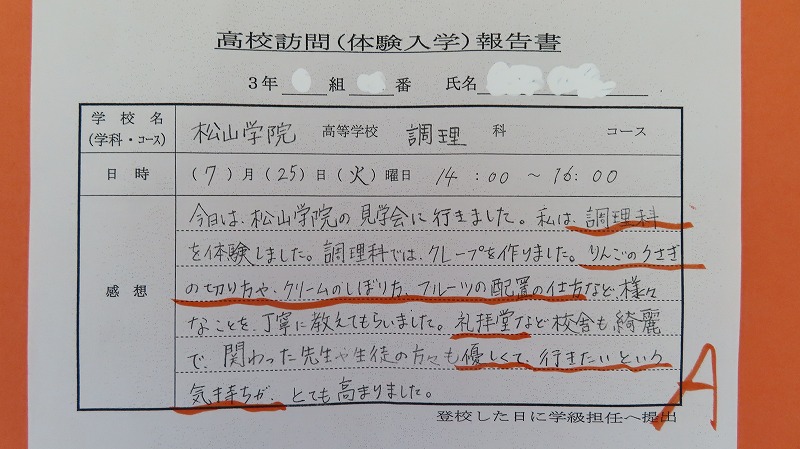 高校訪問(体験入学)報告書
3年 組 番 氏名
学校名 (学科・コース) 松山学院 高等学校 調理 科 コース
日時 (7)月(25)日(火)曜日 14:00~16:00
感想
今日は、松山学院の見学会に行きました。私は、調理科
を体験しました。調理科では、クレープを作りました。りんごのうさぎ
の切り方や、クリームのしぼり方、フルーツの配置の仕方など、様々
なことを、丁寧に教えてもらいました。礼拝堂など校舎も綺麗
で、関わった先生や生徒の方々も優しくて、行きたいという
気持ちが、とても高まりました。
登校した日に学級担任へ提出
A